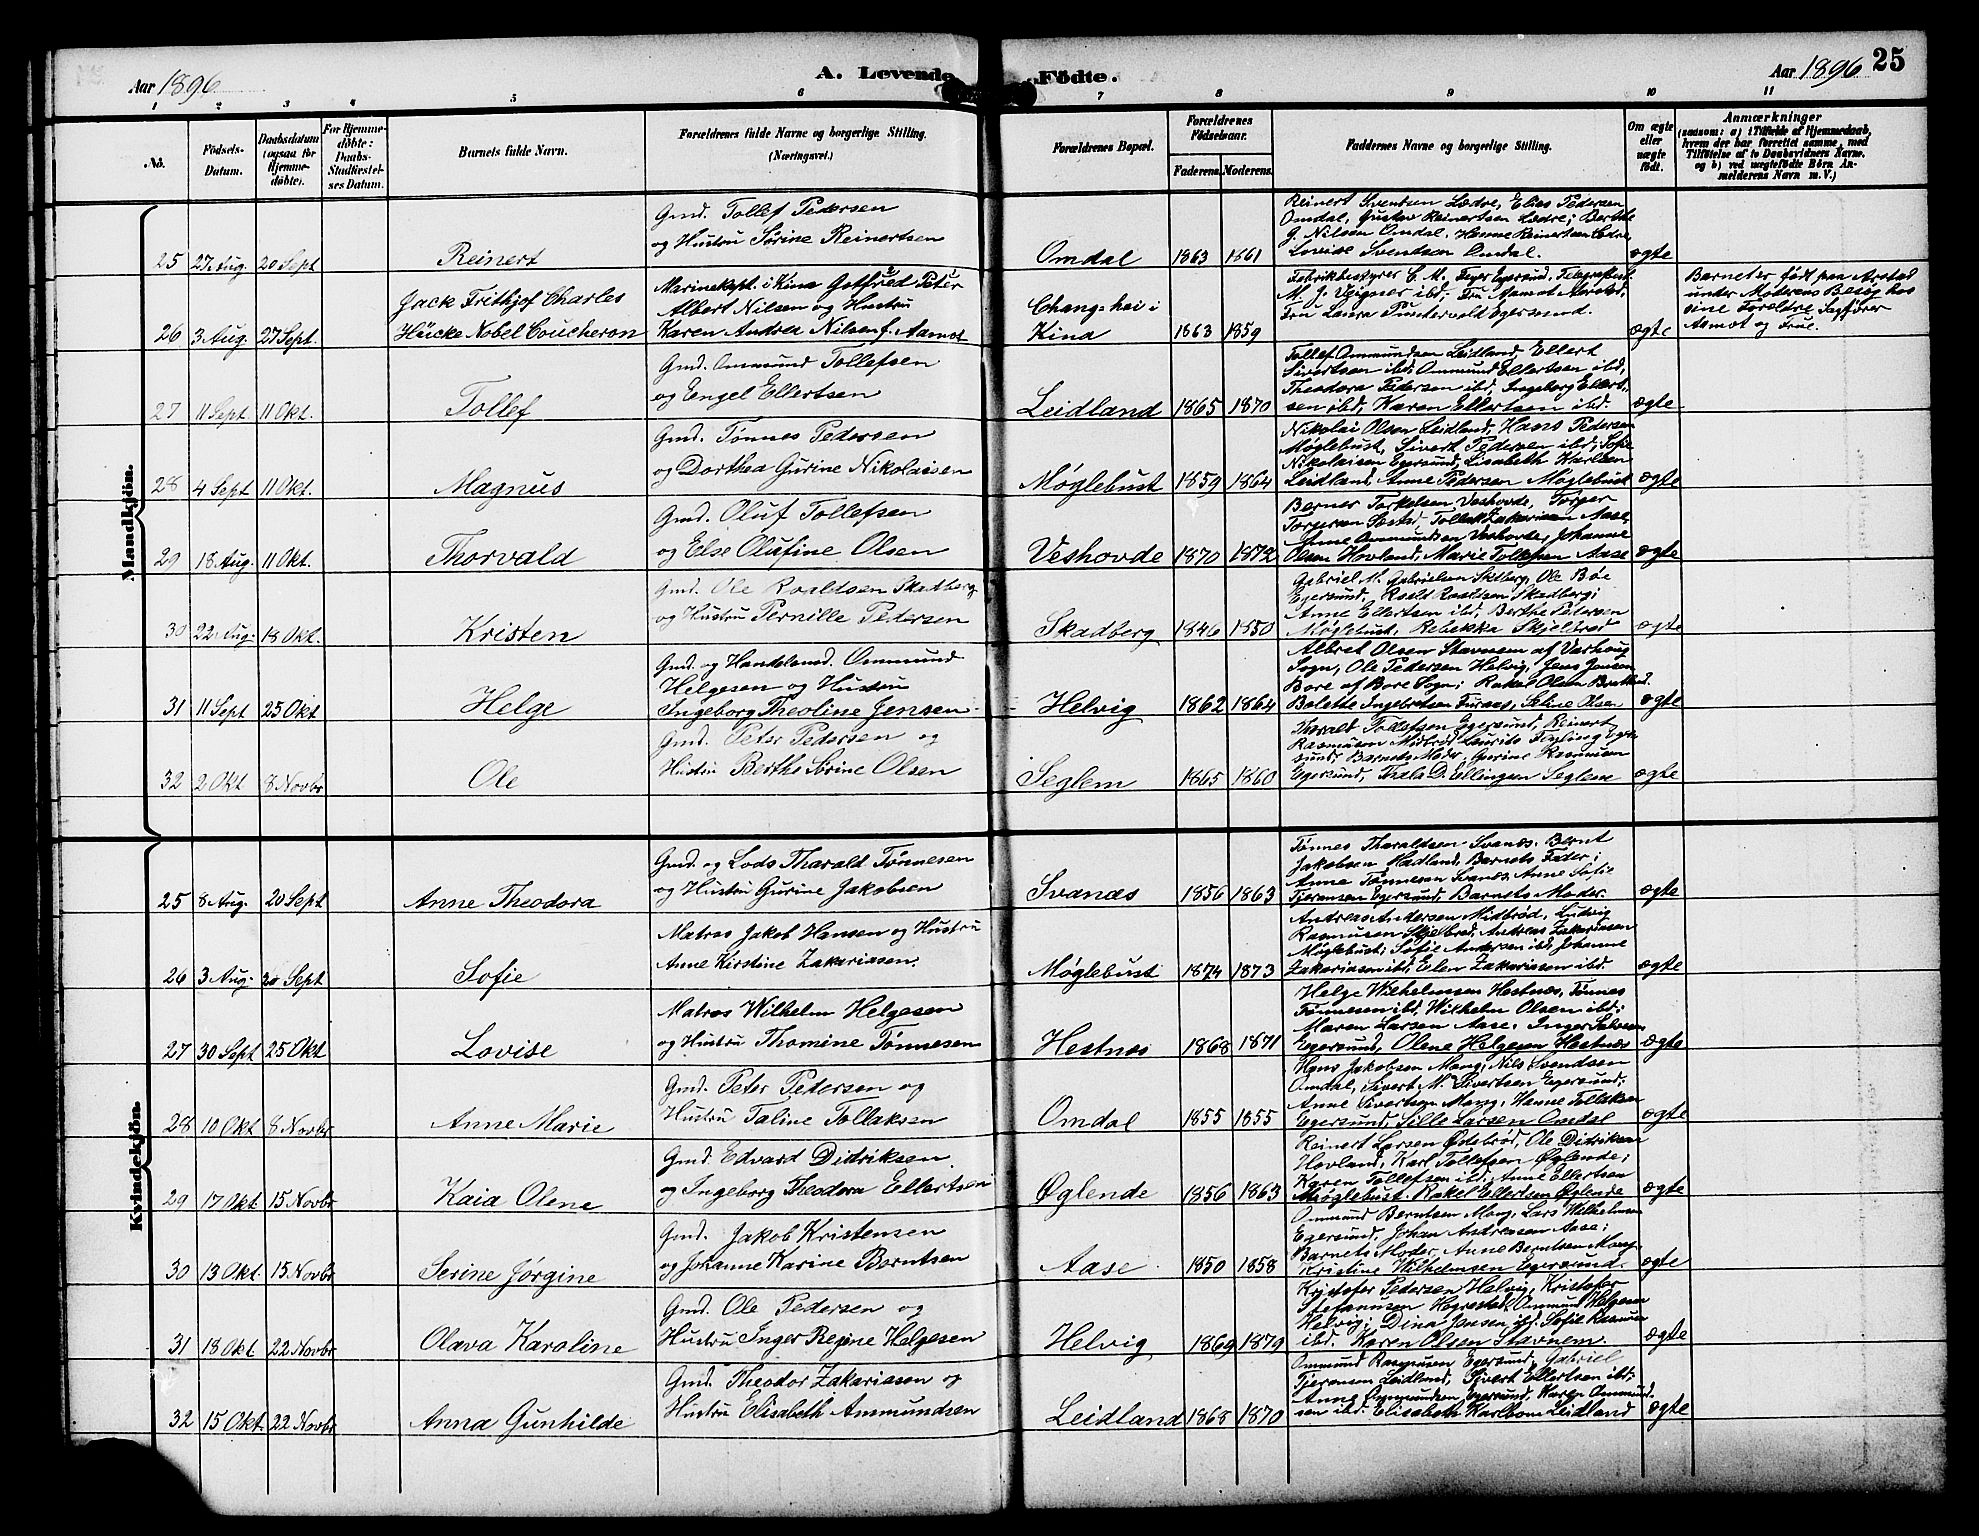 Aar 1896
A. Levende Födte.
Aar 1896
25
1 2 3 4 5 6 7 8 9 10 11
No.
Födsels-Datum.
Daabsdatum (ogsaa for Hjemmedöbte).
For Hjemmedöbte: Daabs-Stadfæstelses Datum.
Barnets fulde Navn.
Forældrenes fulde Navne og borgerlige Stilling. (Næringsvei.)
Forældrenes Bopæl.
Forældrenes Födselsaar.
Faderens. Moderens.
Faddernes Navne og borgerlige Stilling.
Om ægte eller uægte födt.
Anmærkninger
(saasom: a) i Tilfælde af Hjemmedaab, hvem der har forrettet samme, med Tilföielse af to Daabsvidners Navne, og b) ved uægtefödte Börn Anmelderens Navn m. V.)
Mandkjön.
Gmd. Tollef Pedersen
og Hustru Sørine Reinertsen
Reinert Svendsen Lædre, Elias Pedersen
Omdal, Gustav Reinertsen Lædre; Berthe
G. Nilsen Omdal, Hanne Reinertsen Lædre,
Lovise Svendsen Omdal.
25 27 Aug. 20 Sept Reinert Omdal 1863 1861 ægte
Jack Frithjof Charles
Hücke Nobel Coucheron
Marinekapt. i Kina Gotfred Peter
Albert Nilsen og Hustru
Karen Andrea Nilsen f. Aamot
Chang-hai i
Kina
Fabrikbestyrer C. M. Feyer Egersund, Telegrafbest.
M. J. Veigner ibd; Fru Aamot Aarstad,
Fru Laura Puntervold Egersund.
Barnet er født paa Arstad
under Moderens Besøg hos
sine Forældre, Sagfører
Aamot og Frue.
26 3 Aug. 27 Sept. 1863 1859 ægte
Gmd. Ommund Tollefsen
og Engel Ellertsen
Tollef Ommundsen Leidland, Ellert
Sivertsen ibd; Ommund Ellertsen ibd,
Theodora Pedersen ibd, Ingeborg Ellert-
sen ibd, Karen Ellertsen ibd.
27 11 Sept. 11 Okt. Tollef Leidland 1865 1870 ægte
Gmd. Tønnes Pedersen
og Dorthea Gurine Nikolaisen
Nikolai Olsen Leidland, Hans Pedersen
Møglebust, Sivert Pedersen ibd; Sofie
Nikolaisen Egersund, Lisabeth Karlsen
Leidland, Anne Pedersen Møglebust
28 4 Sept 11 Okt. Magnus Møglebust 1859 1864 ægte
Gmd. Oluf Tollefsen
og Else Olufine Olsen
Berner Torkelsen Veshovde, Torger
Torgersen, Tollak Zakariasen Aase,
Anne Ommundsen Veshovde, Johanne
Olsen Hovland, Marie Tollefsen Aase
29 18 Aug. 11 Okt. Thorvald Veshovde 1870 1872 ægte
Gmd. Ole Roaldsen Skadberg
og Hustru Pernille Pedersen
Gabriel M. Gabrielsen Skadberg, Ole Bøe
Egersund, Roald Roaldsen Skadberg;
Anne Ellertsen ibd, Berthe Pedersen
Møglebust, Rebekka Skjelbred
30 22 Aug. 18 Okt. Kristen Skadberg 1846 1850 ægte
Gmd. og Handelsmd. Ommund
Helgesen og Hustru
Ingeborg Theoline Jensen
Albret Olsen Stavnem af Varhaug
Sogn, Ole Pedersen Helvig, Jens Jensen
Bore af Bore Sogn; Rakel Olsen
Bolette Ingebretsen Furnes, Seline Olsen
31 11 Sept 25 Okt Helge Helvig 1862 1864 ægte
Gmd. Peter Pedersen og
Hustru Berthe Sørine Olsen
Tharald Tollefsen Egersund, Reinert
Rasmusen Midbrød, Laurits Egersund;
Barnets Moder, Gurine Rasmusen
Egersund, Thala D. Ellingsen Seglem
32 2 Okt 8 Novbr Ole Seglem 1865 1860 ægte
Kvindekjön.
Gmd. og Lods Tharald Tønnesen
og Hustru Gurine Jakobsen
Tønnes Tharaldsen Svanæs, Bernt
Jakobsen Hadland, Barnets Fader;
Anne Tønnesen Svanæs, Anne Sofie
Tjeransen Egersund, Barnets Moder.
25 8 Aug. 20 Sept Anne Theodora Svanæs 1856 1863 ægte
Matros Jakob Hansen og Hustru
Anne Kirstine Zakariasen.
Andreas Andersen Midbrød, Ludvig
Rasmusen Skjelbred, Andreas Zakariasen
Møglebust; Sofie Andersen ibd, Johanne
Zakariasen ibd, Elen Zakariasen ibd.
26 3 Aug. 20 Sept Sofie Møglebust 1874 1873 ægte
Matros Wilhelm Helgesen
og Hustru Thomine Tønnesen
Helge Wilhelmsen Hestnes, Tønnes
Tønnesen ibd, Wilhelm Olsen ibd;
Maren Larsen Aase, Inger
Egersund, Olene Helgesen Hestnes
27 30 Sept 25 Okt Lovise Hestnes 1868 1871 ægte
Gmd. Peter Pedersen og
Hustru Taline Tollaksen
Hans Jakobsen Mong, Nils Svendsen
Omdal, Sivert M. Sivertsen Egersund;
Anne Sivertsen Mong, Hanne Tollaksen
Egersund, Sille Larsen Omdal
28 10 Okt 8 Novbr Anne Marie Omdal 1855 1855 ægte
Gmd. Edvard Didriksen
og Ingeborg Theodora Ellertsen
Reinert Larsen Ødebrød, Ole Didriksen
Hovland, Karl Tollefsen Øglende;
Karen Tollefsen ibd, Anne Ellertsen
Møglebust, Rakel Ellertsen Øglende
29 17 Okt 15 Novbr Kaia Olene Øglende 1856 1863 ægte
Gmd. Jakob Kristensen
og Johanne Karine Berntsen
Ommund Berntsen Mong, Lars Wilhelmsen
Egersund, Johan Andreasen Aase;
Barnets Moder, Anne Berntsen Mong,
Kristine Wilhelmsen Egersund.
30 13 Okt. 15 Novbr Serine Jørgine Aase 1850 1858 ægte
Gmd. Ole Pedersen og
Hustru Inger Regine Helgesen
Kristofer Pedersen Helvig, Kristofer
Stefansen Hegrestad, Ommund Helgesen
Helvig; Dina Jensen ibd, Sofie Rasmusen
ibd. Karen Olsen Stavnem.
31 18 Okt 22 Novbr Olava Karoline Helvig 1869 1879 ægte
Gmd. Theodor Zakariasen og
Hustru Elisabeth Ommundsen
Ommund Rasmusen Egersund, Gabriel
Tjeransen Leidland, Sivert Ellertsen ibd;
Anne Ommundsen Egersund, Karen Ommund-
sen ibd. Elisabeth Karlsen Leidland
32 15 Okt. 22 Novbr Anna Gunhilde Leidland 1868 1870 ægte